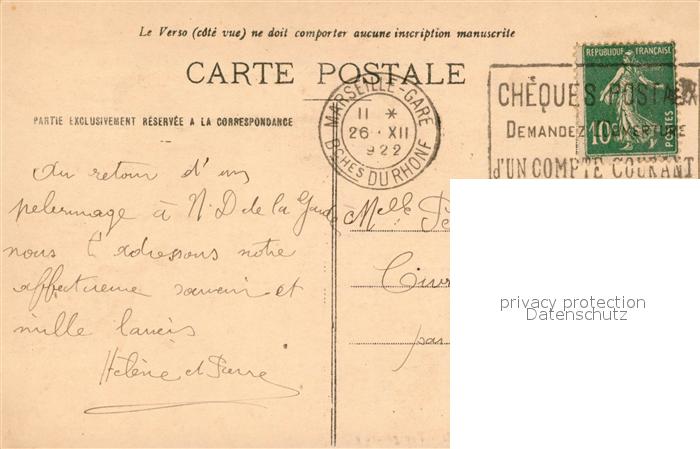 Le Verso (côté vue) ne doit comporter aucune inscription manuscrite
CARTE POSTALE
PARTIE EXCLUSIVEMENT RÉSERVÉE A LA CORRESPONDANCE
MARSEILLE-GARE
11 *
26 · XII
922
BCHES DU RHONE
REPUBLIQUE FRANÇAISE
10
POSTES
CHÈQUES POSTAUX
DEMANDEZ L'OUVERTURE
d'UN COMPTE COURANT
Au retour d'un
pelerinage à N. D de la Garde
nous t'adressons notre
affectueux souvenir et
mille
Hélène et Pierre
Melle
privacy protection
Datenschutz